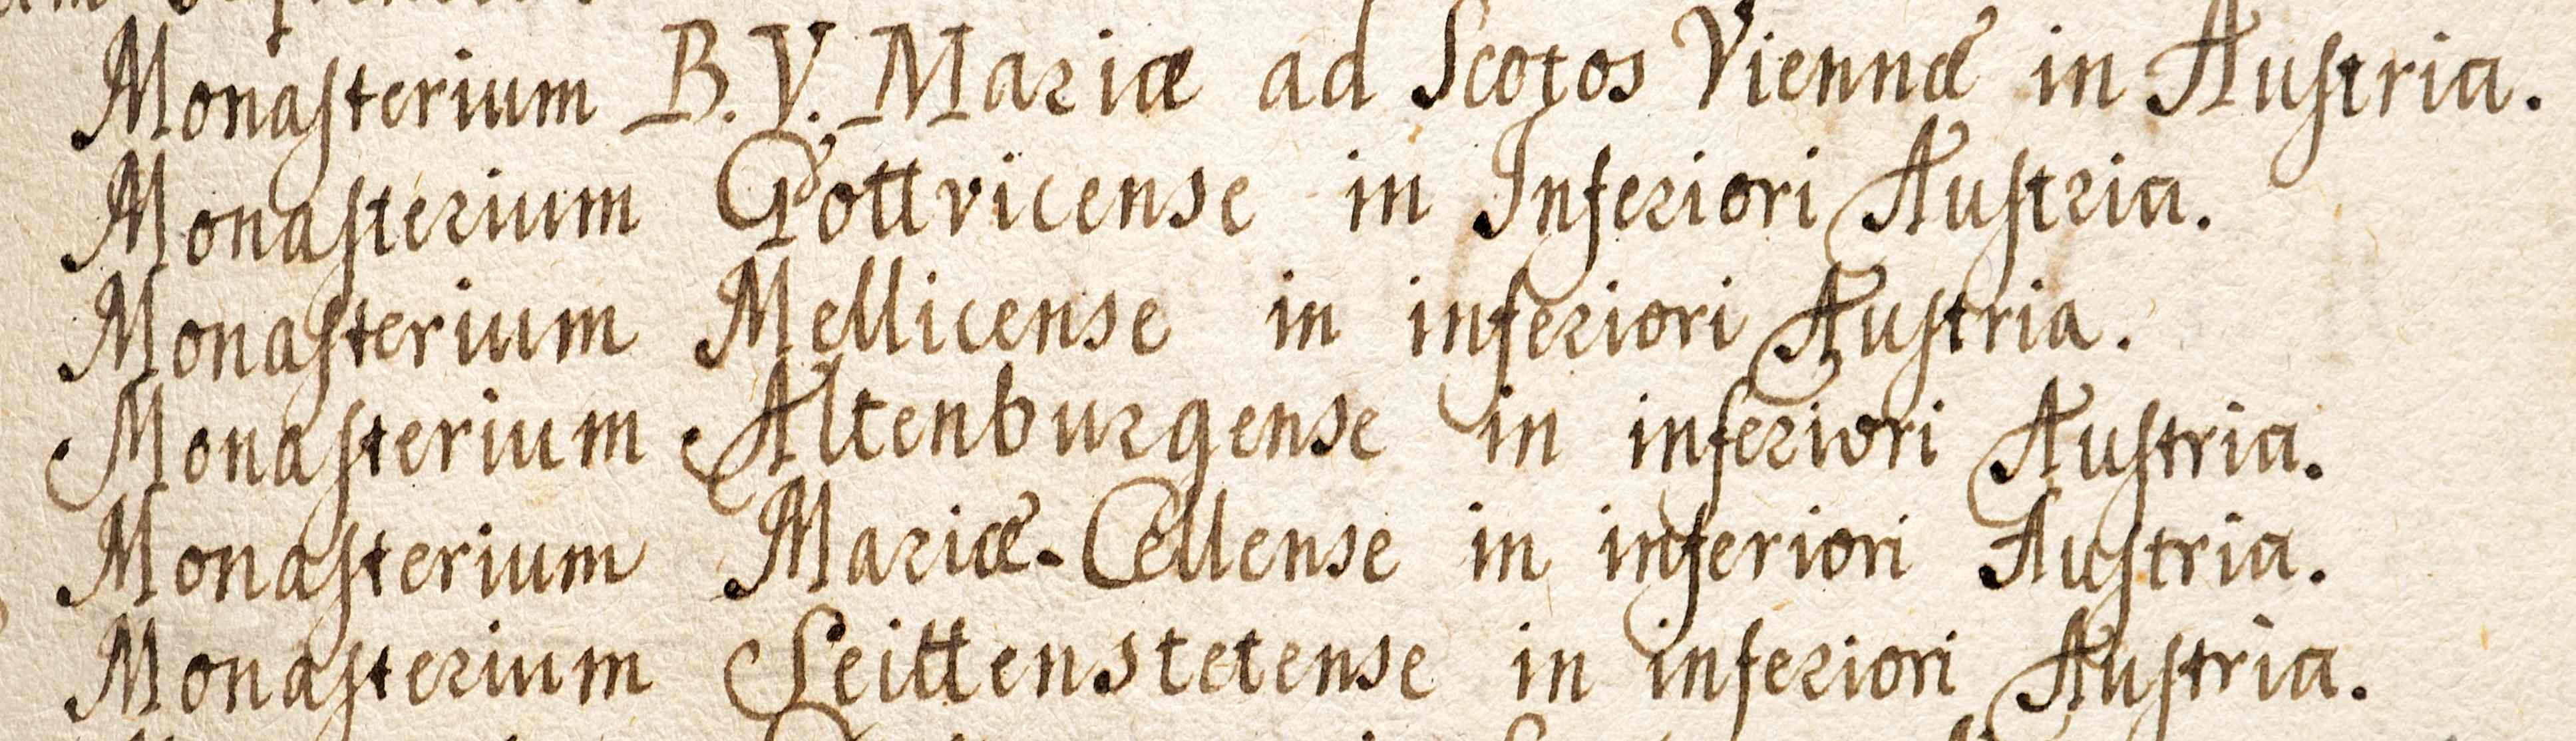 Monasterium B. V. Mariæ ad Scotos Viennæ in Austria.
Monasterium Gottvicense in Inferiori Austria.
Monasterium Mellicense in inferiori Austria.
Monasterium Altenburgense in inferiori Austria.
Monasterium Mariæ-Cellense in inferiori Austria.
Monasterium Seittenstetense in inferiori Austria.